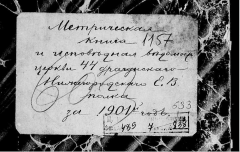 Метрическая
книга 1157
и исповедная ведомость
церкви 44 драгунского
Нижегородского Е. В.
полка
за 1901 годъ.
533
489